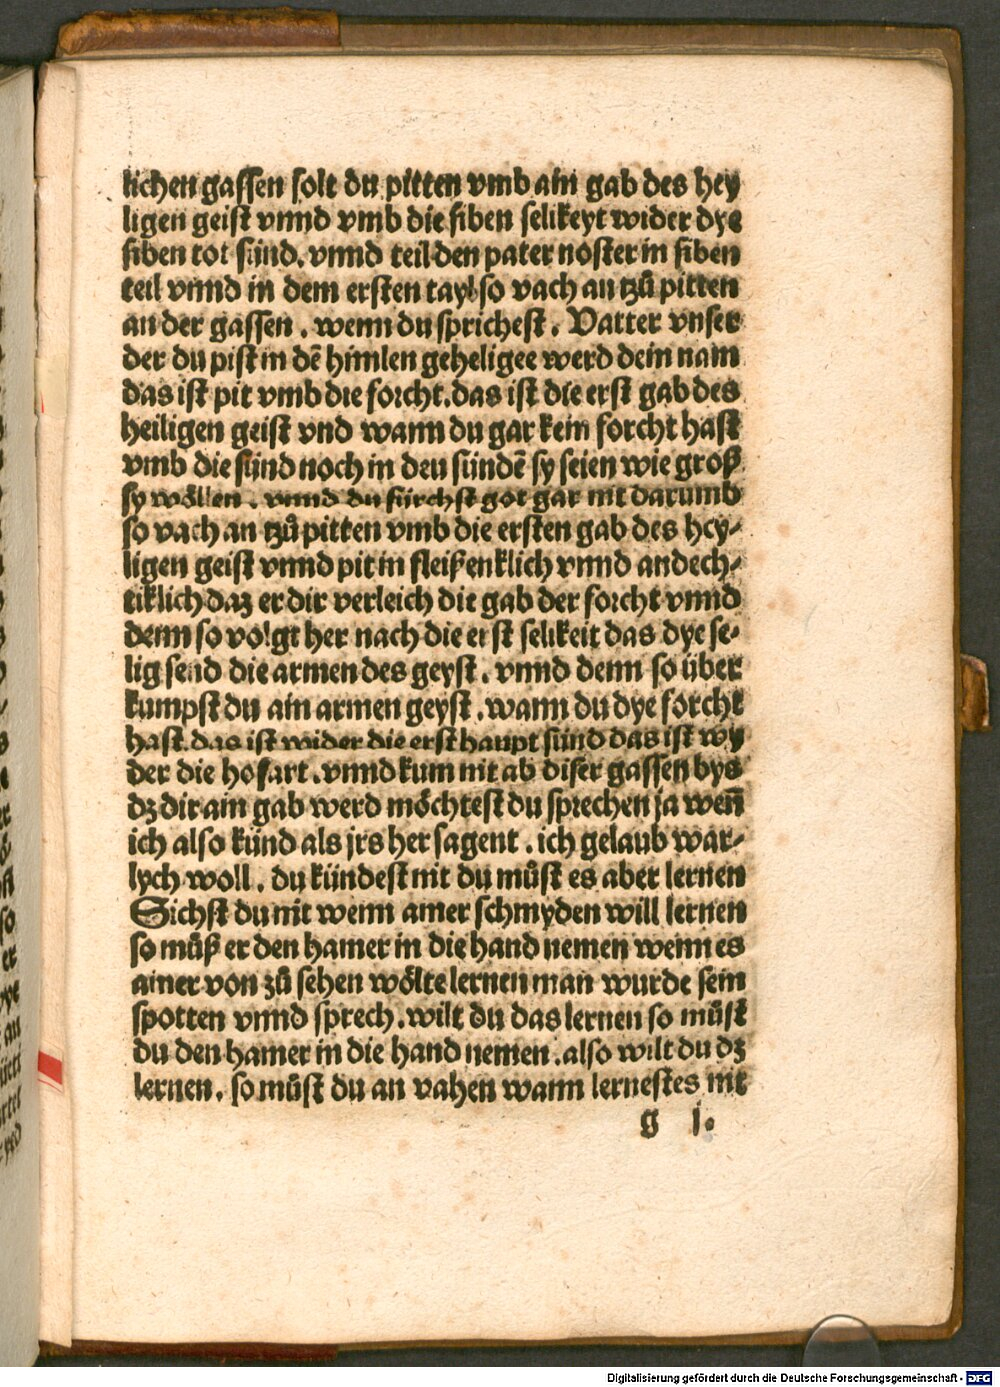 lichen gassen solt du pitten vmb ain gab des hey
ligen geist vnnd vmb die siben selikeyt wider dye
siben tot sünd. vnnd teil den pater noster in siben
teil vnnd in dem ersten tayl so vach an tzů pitten
an der gassen . wenn du sprichest . Vatter vnser
der du pist in dē himlen geheligee werd dein nam
das ist pit vmb die forcht. das ist die erst gab des
heiligen geist vnd wann du gar kein forcht hast
vmb die sünd noch in den sündē sy seien wie groß
sy wöllen . vnnd du fürchst got gar nit darumb
so vach an tzů pitten vmb die ersten gab des hey-
ligen geist vnnd pit in fleißenklich vnnd andech-
tiklich daz er dir verleich die gab der forcht vnnd
denn so volgt her nach die erst selikeit das dye se-
lig send die armen des geyst . vnnd denn so über
kumpst du ain armen geyst . wann du dye forcht
hast. das ist wider die erst haupt sünd das ist wy
der die hofart . vnnd kum nit ab diser gassen bys
dz dir ain gab werd möchtest du sprechen ja weñ
ich also künd als jrs her sagent . ich gelaub war-
lych woll . du kündest nit du můst es aber lernen
Sichst du nit wenn ainer schmyden will lernen
so můß er den hamer in die hand nemen wenn es
ainer von zů sehen wölte lernen man wurde sein
spotten vnnd sprech . wilt du das lernen so můst
du den hamer in die hand nemen . also wilt du dz
lernen . so můst du an vahen wann lernestes nit
g j.
Digitalisierung gefördert durch die Deutsche Forschungsgemeinschaft - DFG